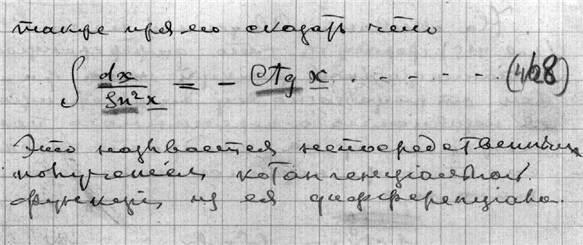 также прямо сказать что
∫ dx / Sn²x = - Ctg x . - - - - - - (428)
Это называется непосредственным
получением котангенциальной
функции из ея дифференциала.